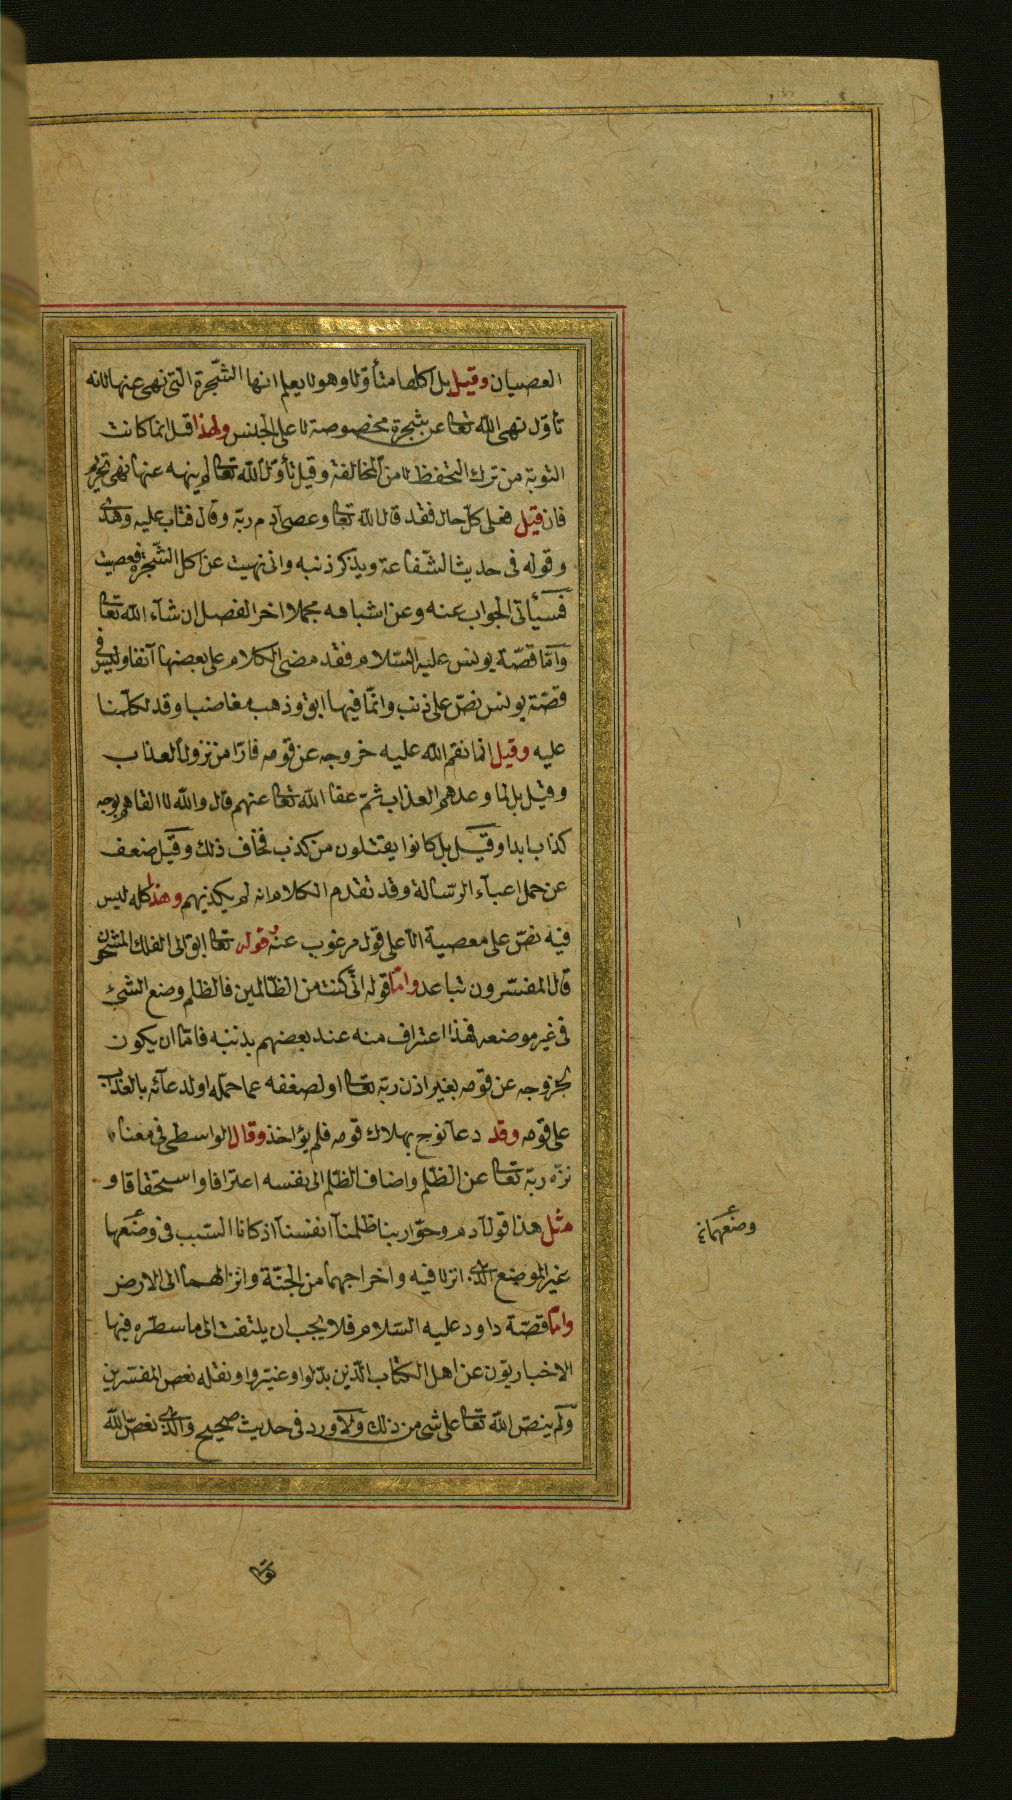 العصيان وقيل بل اكلها متأولا وهو لا يعلم انها الشّجرة التى نهى عنها لانه
تأوّل نهى اللّه تعالى عن شجرة مخصوصة لا على الجنس ولهذا قيل انما كانت
التوبة من ترك التحفظ لا من المخالفة وقيل تأوّل انّ اللّه تعالى لم ينهه عنها نهى تحريم
فان قيل فعلى كلّ حال فقد قال اللّه تعالى وعصى آدم ربّه وقال فتاب عليه وهدى
وقوله فى حديث الشّفاعة ويذكر ذنبه وانى نهيت عن اكل الشّجرة فعصيت
فسيأتى الجواب عنه وعن اشباهه مجملا اخر الفصل ان شآء اللّه تعالى
وامّا قصّة يونس عليه السّلام فقد مضى الكلام على بعضها آنفا وليس فى
قصّة يونس نصّ على ذنب وانّما فيها ابق وذهب مغاضبا وقد تكلّمنا
عليه وقيل انما نقم اللّه عليه خروجه عن قومه فارّا من نزول العذاب
وقيل بل لما وعدهم العذاب ثمّ عفا اللّه تعالى عنهم قال واللّه لا القاهم بوجه
كذاب ابدا وقيل بل كانوا يقتلون من كذب فخاف ذلك وقيل ضعف
عن حمل اعبآء الرّسالة وقد تقدم الكلام انه لم يكذبهم وهذا كله ليس
فيه نصّ على معصية الّا على قول مرغوب عنه وقوله تعالى ابق الى الفلك المشحون
قال المفسّرون تباعد وامّا قوله انّى كنت من الظّالمين فالظلم وضع الشئ
فى غير موضعه فهذا اعتراف منه عند بعضهم بذنبه فامّا ان يكون
لخروجه عن قومه بغير اذن ربّه تعالى او لضعفه عما حمّله او لدعآئه بالعذاب
على قومه وقد دعا نوح بهلاك قومه فلم يؤاخذ وقال الواسطى فى معناه
نزّه ربّه تعالى عن الظّلم واضاف الظّلم الى نفسه اعترافا واستحقاقا و
مثل هذا قول آدم وحوّا ربنا ظلمنآ انفسنآ اذ كانا السّبب فى وضعها
وضعهما نخ
غير الموضع الّذى انزلا فيه واخراجهما من الجنّة وانزالهما الى الارض
وامّا قصّة داود عليه السّلام فلا يجب ان يلتفت الى ما سطّره فيها
الاخباريّون عن اهل الكتاب الّذين بدّلوا وغيّروا ونقله بعض المفسّرين
ولم ينصّ اللّه تعالى على شئ من ذلك ولا ورد فى حديث صحيح والّذى نصّ اللّه
تعالى